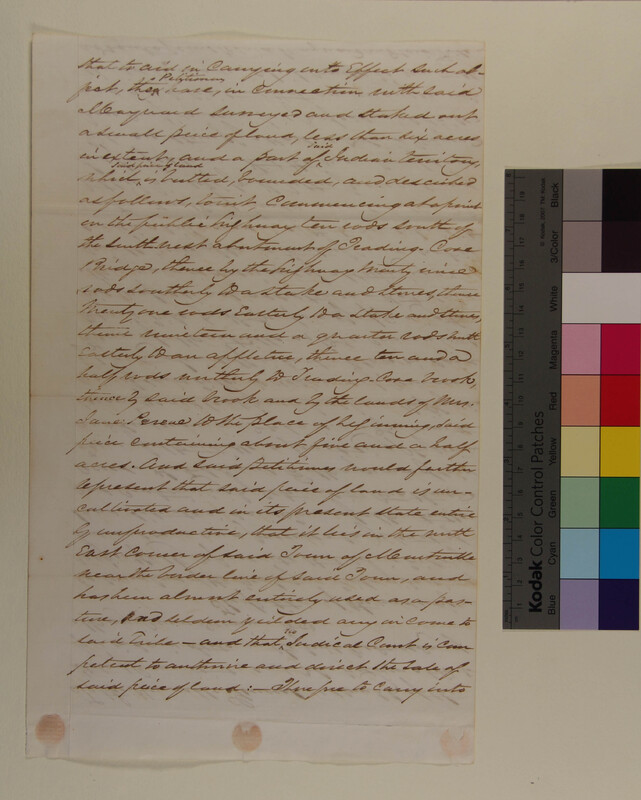 that to aid in Carrying into Effect such ob-
ject, the Petitioners have, in Connection with said
Maynard surveyed and staked out
a small piece of land, less than six acres
in extent, and a part of said Indian territory,
which said piece of land is butted, bounded, and described
as follows, to wit Commencing at a point
in the public highway ten rods south of
the South west abutment of Trading Cove
Bridge, thence by the highway twenty nine
rods southerly to a stake and stones, thence
twenty one rods Easterly to a stake and stones,
thence nineteen and a quarter rods north
easterly to an appletree, thence ten and a
half rods northerly to Trading Cove brook,
thence by said brook and by the lands of Mrs.
Jane to the place of beginning, said
piece containing about five and a half
acres. And said Petitioners would further
represent that said piece of land is un-
cultivated and in its present state entire
ly unproductive, that it lies in the north
East Corner of said Town of Montville
near the border line of said Town, and
has been almost entirely used as a pas-
ture, and seldom yielded any income to
said Tribe — and that no Judical Court is com
petent to authorize and direct the sale of
said piece of land: — Therefore to Carry into
Kodak Color Control Patches
© Kodak, 2007 TM: Kodak
Blue Cyan Green Yellow Red Magenta White 3/Color Black